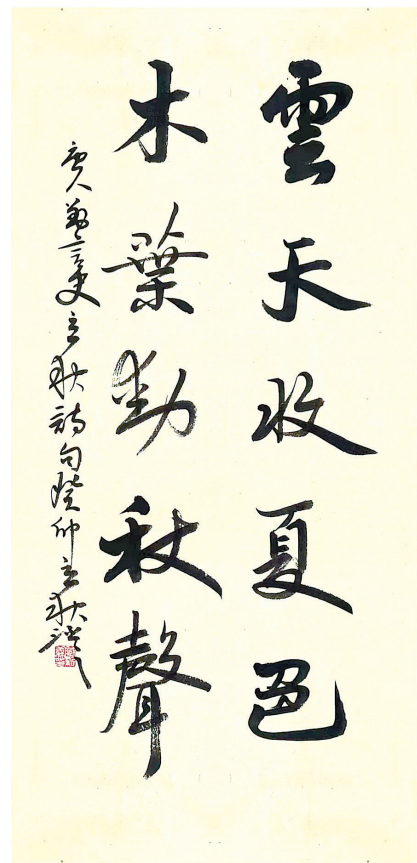 雲天收夏色
木葉動秋聲
唐人劉言史立秋詩句癸卯立秋